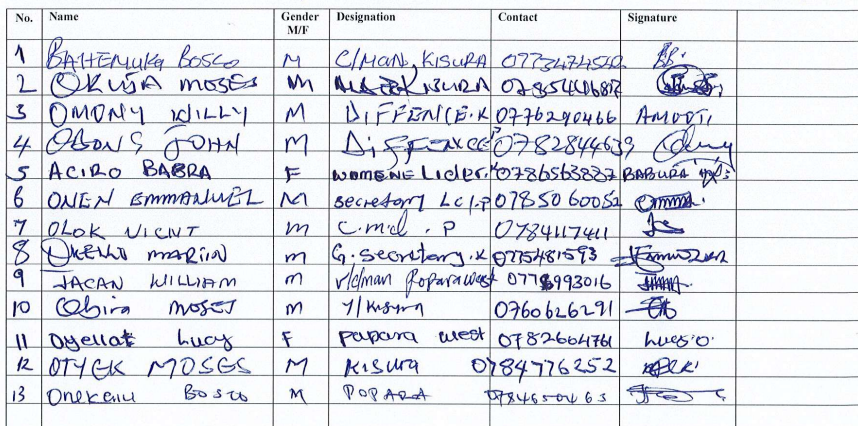 No. Name Gender M/F Designation Contact Signature
1 BAHEMUKA BOSCO M C/MAN, KISURA
2 OKUJA MOSES M KISURA
3 OMONY WILLY M DIFFENCE.K 0776290466 AMOOTI
4 OBONG JOHN M DiffENCE P 0782844639
5 ACIRO BABRA F WOMENE Lider.K 0786563887 BABURA
6 ONEN EMMANUEL M secretary LCI.P 0785060052 emma.
7 OLOK VICNT M C.md. P 0784117411
8 OKELLO MARTIN M G. secretary.K 0775481593
9 JACAN WILLIAM M v/c/man Popara west
10 Obira MOSES M Y/Kisura 0760626291
11 Oyellat Lucy F Papara west 0782604761 Lucy.O.
12 OTYEK MOSES M Kisura 0784776252
13 BOSCO M POPARA